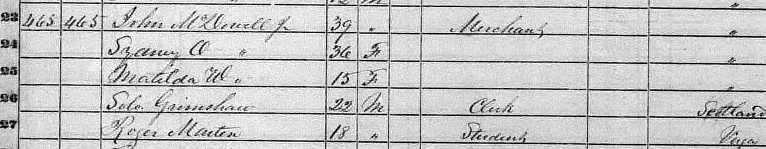 23 465 465 John McDowell Jr 39 " Merchant "
24 Sydney O " 36 F "
25 Matilda W " 15 F "
26 Solo. Grimshaw 22 M Clerk Scotland
27 Roger Marten 18 " Student